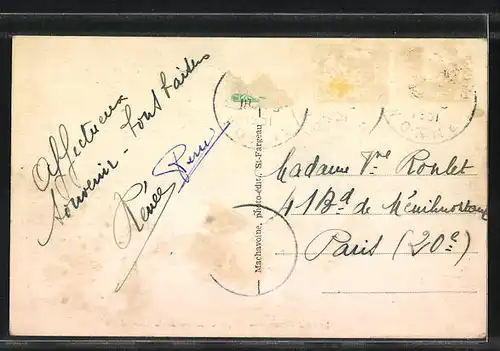 Affectueux
Souvenir -
Renée Pierre
Machavoine, photo-édit., St-Fargeau
Madame Vve Roulet
41 Bd de Ménilmontant
Paris (20e)